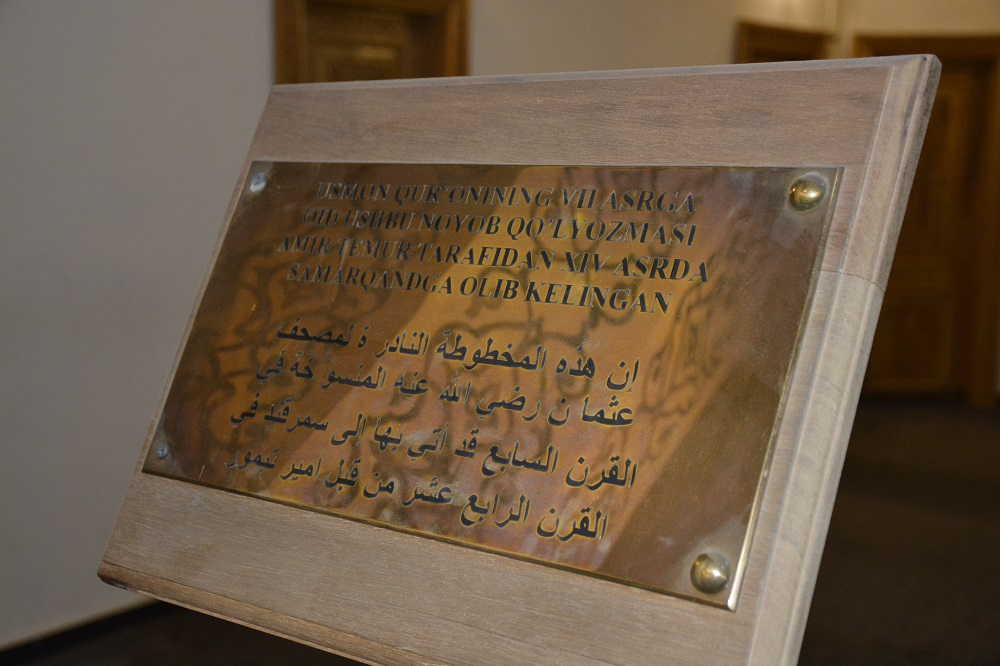 USMON QUR'ONINING VII ASRGA
OID USHBU NOYOB QO'LYOZMASI
AMIR TEMUR TARAFIDAN XIV ASRDA
SAMARQANDGA OLIB KELINGAN
إن هذه المخطوطة النادر ة لمصحف
عثما ن رضي الله عنه المنسو خة في
القرن السابع قد أتى بها إلى سمرقند في
القرن الرابع عشر من قبل امير تيمور